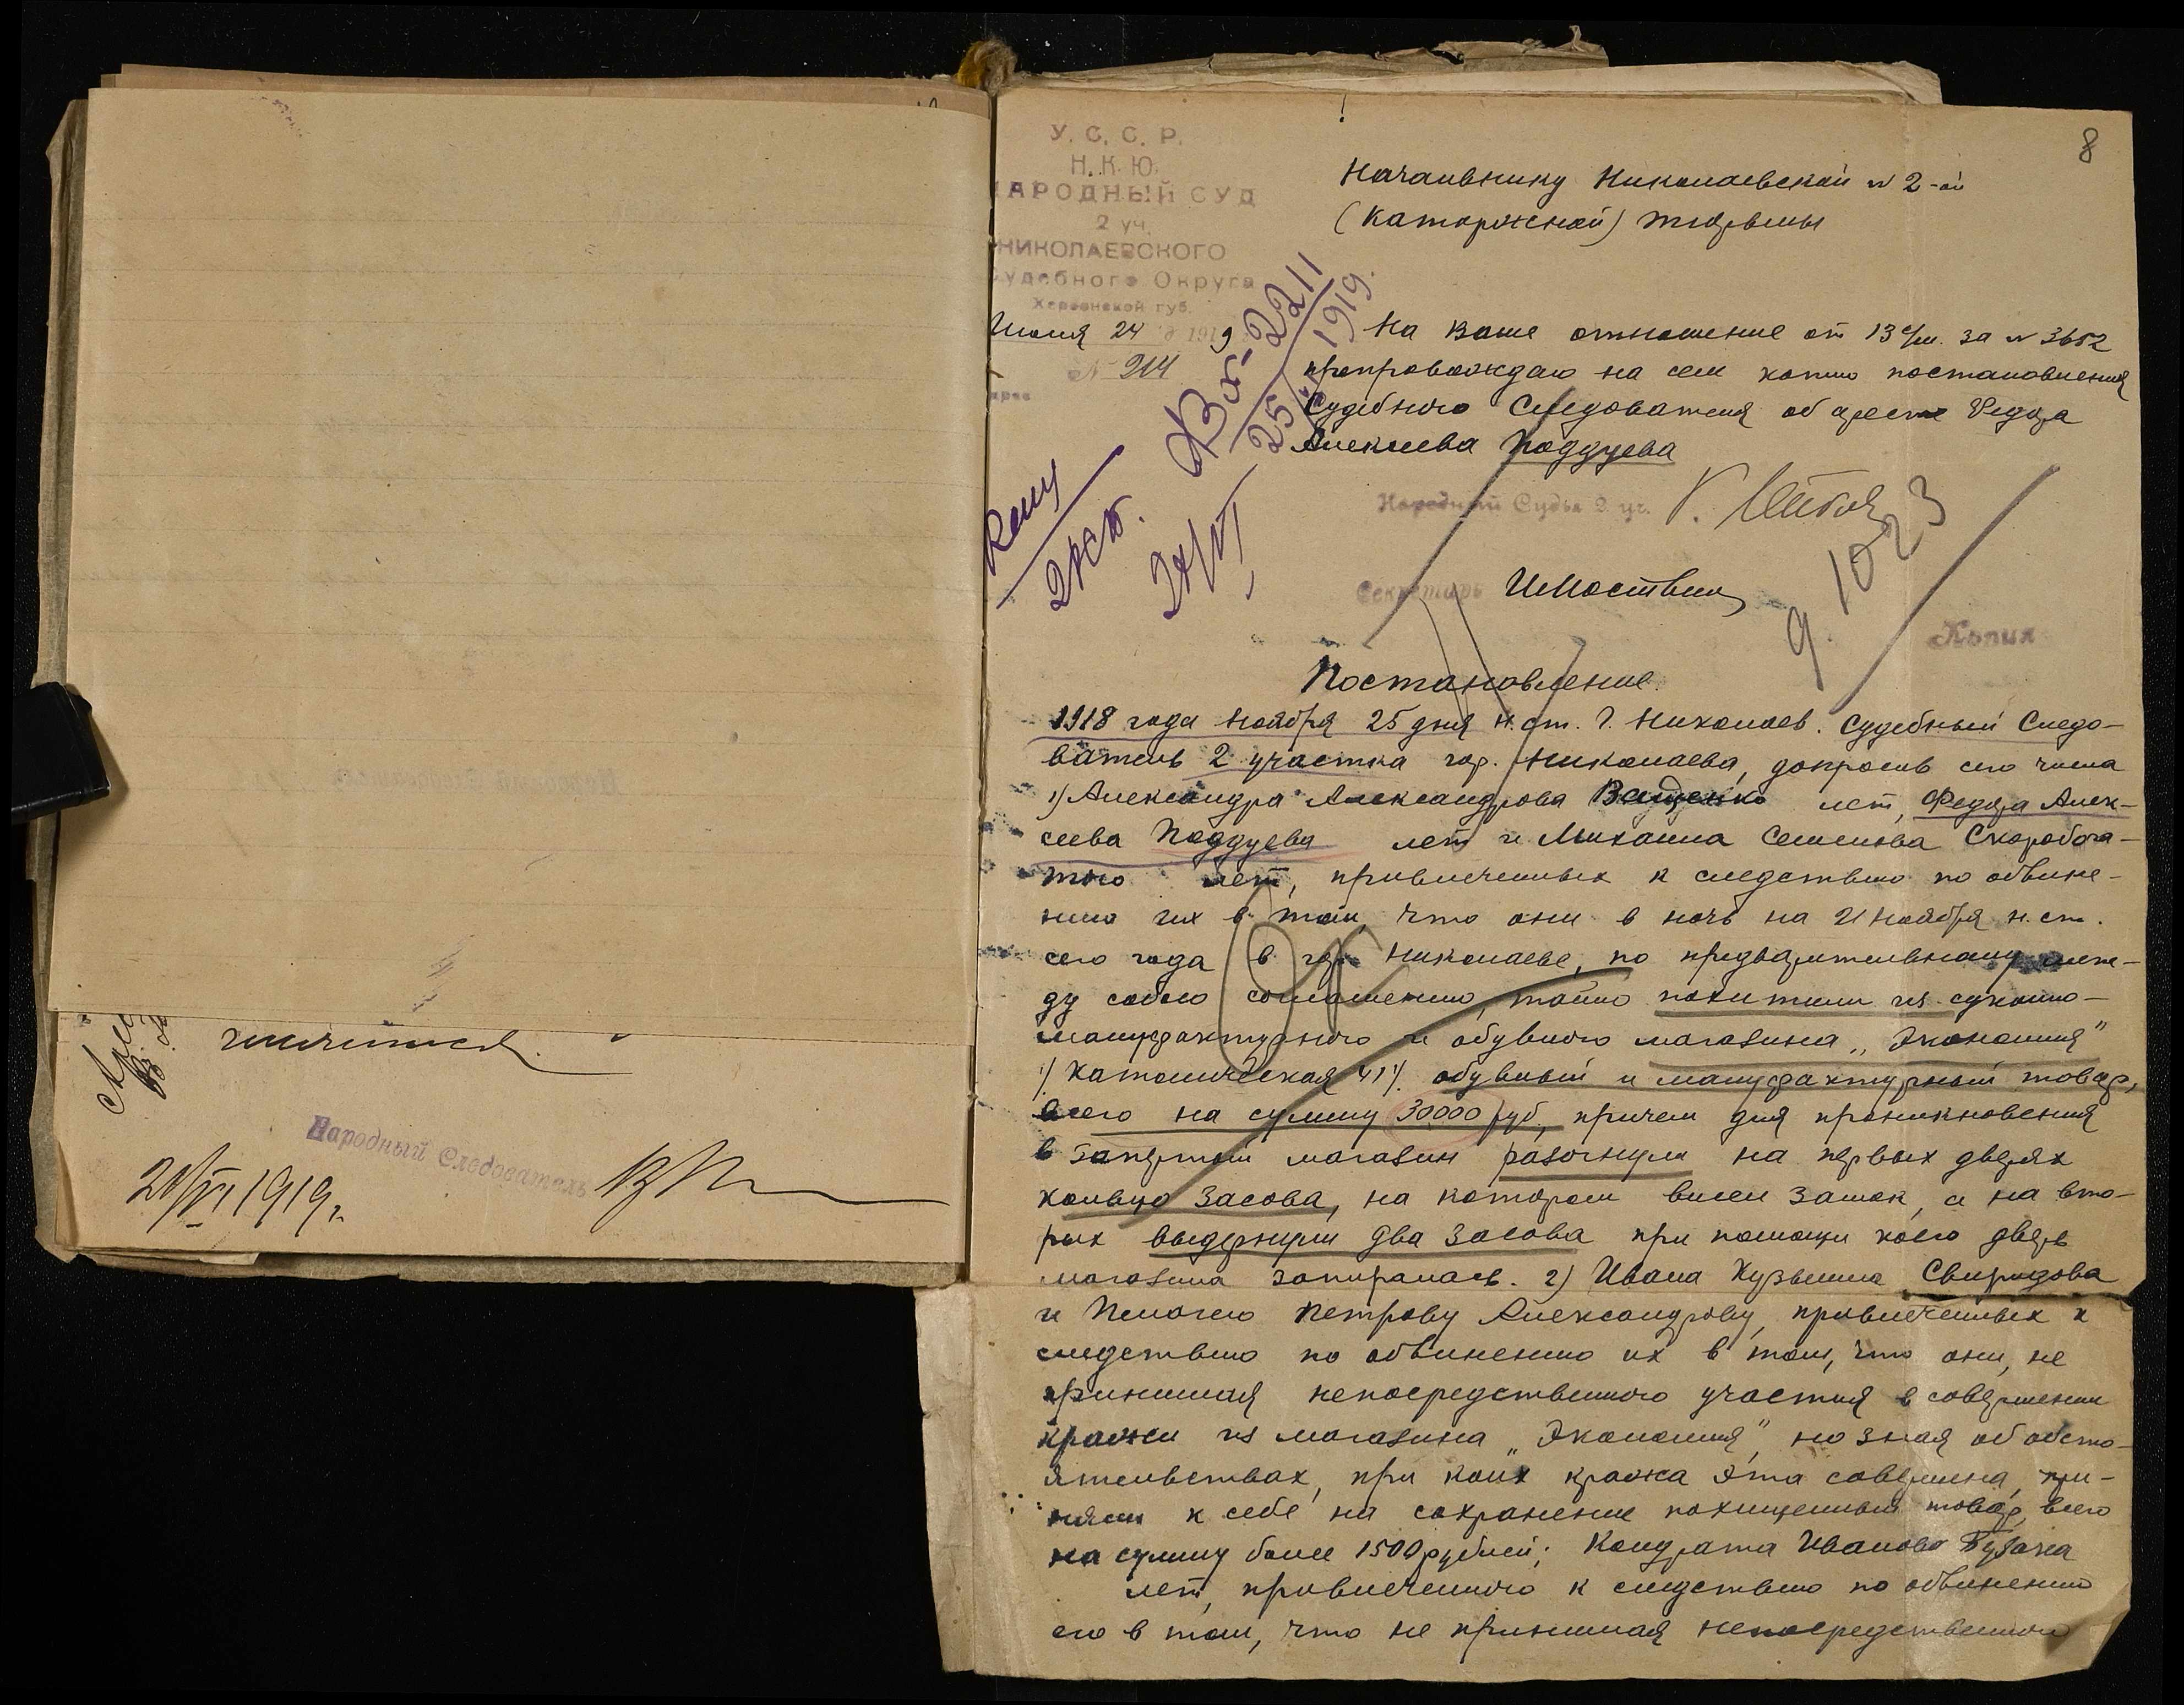 числится
Народный Следователь
21/VI 1919 г.
8
У. С. С. Р.
Н. К. Ю.
НАРОДНЫЙ СУД
2 уч.
НИКОЛАЕВСКОГО
Судебного Округа
Херсонской губ.
Июня 24 д 1919
№ 914
Вх-2211
25/VI 1919.
24/VI
Начальнику Николаевской № 2-ой
(каторжной) тюрьмы
На Ваше отношение от 13 с/м. за № 3652
препровождаю на сем копию постановления
Судебного Следователя об аресте Федора
Алексеева Поддуева
Народный Судья 2 уч.
Секретарь
9. 1023
Копия
Постановление.
1918 года ноября 25 дня н. ст. г. Николаев. Судебный Следо-
ватель 2 участка гор. Николаева, допросив сего числа
1) Александра Александрова Ващенко лет, Федора Алек-
сеева Поддуева лет и Михаила Семенова Скоробога-
того лет, привлеченных к следствию по обвине-
нию их в том, что они в ночь на 21 ноября н. ст.
сего года в гор. Николаеве, по предварительному меж-
ду собою соглашению, тайно похитили из суконно-
мануфактурного и обувного магазина „Экономия"
/Католическая 41/. обувный и мануфактурный товар,
всего на сумму 30000 руб, причем для проникновения
в запертый магазин разогнули на первых дверях
кольцо засова, на котором висел замок, а на вто-
рых выдернули два засова при помощи коего дверь
магазина запиралась. 2) Ивана Кузьмина Свиридова
и Пелагею Петрову Александрову, привлеченных к
следствию по обвинению их в том, что они, не
принимая непосредственного участия в совершении
кражи из магазина „Экономия", но зная об обсто-
ятельствах, при коих кража эта совершена, при-
няли к себе на сохранение похищенный товар, всего
на сумму более 1500 рублей; Кондрата Иванова Бузана
лет, привлеченного к следствию по обвинению
его в том, что не принимая непосредственного